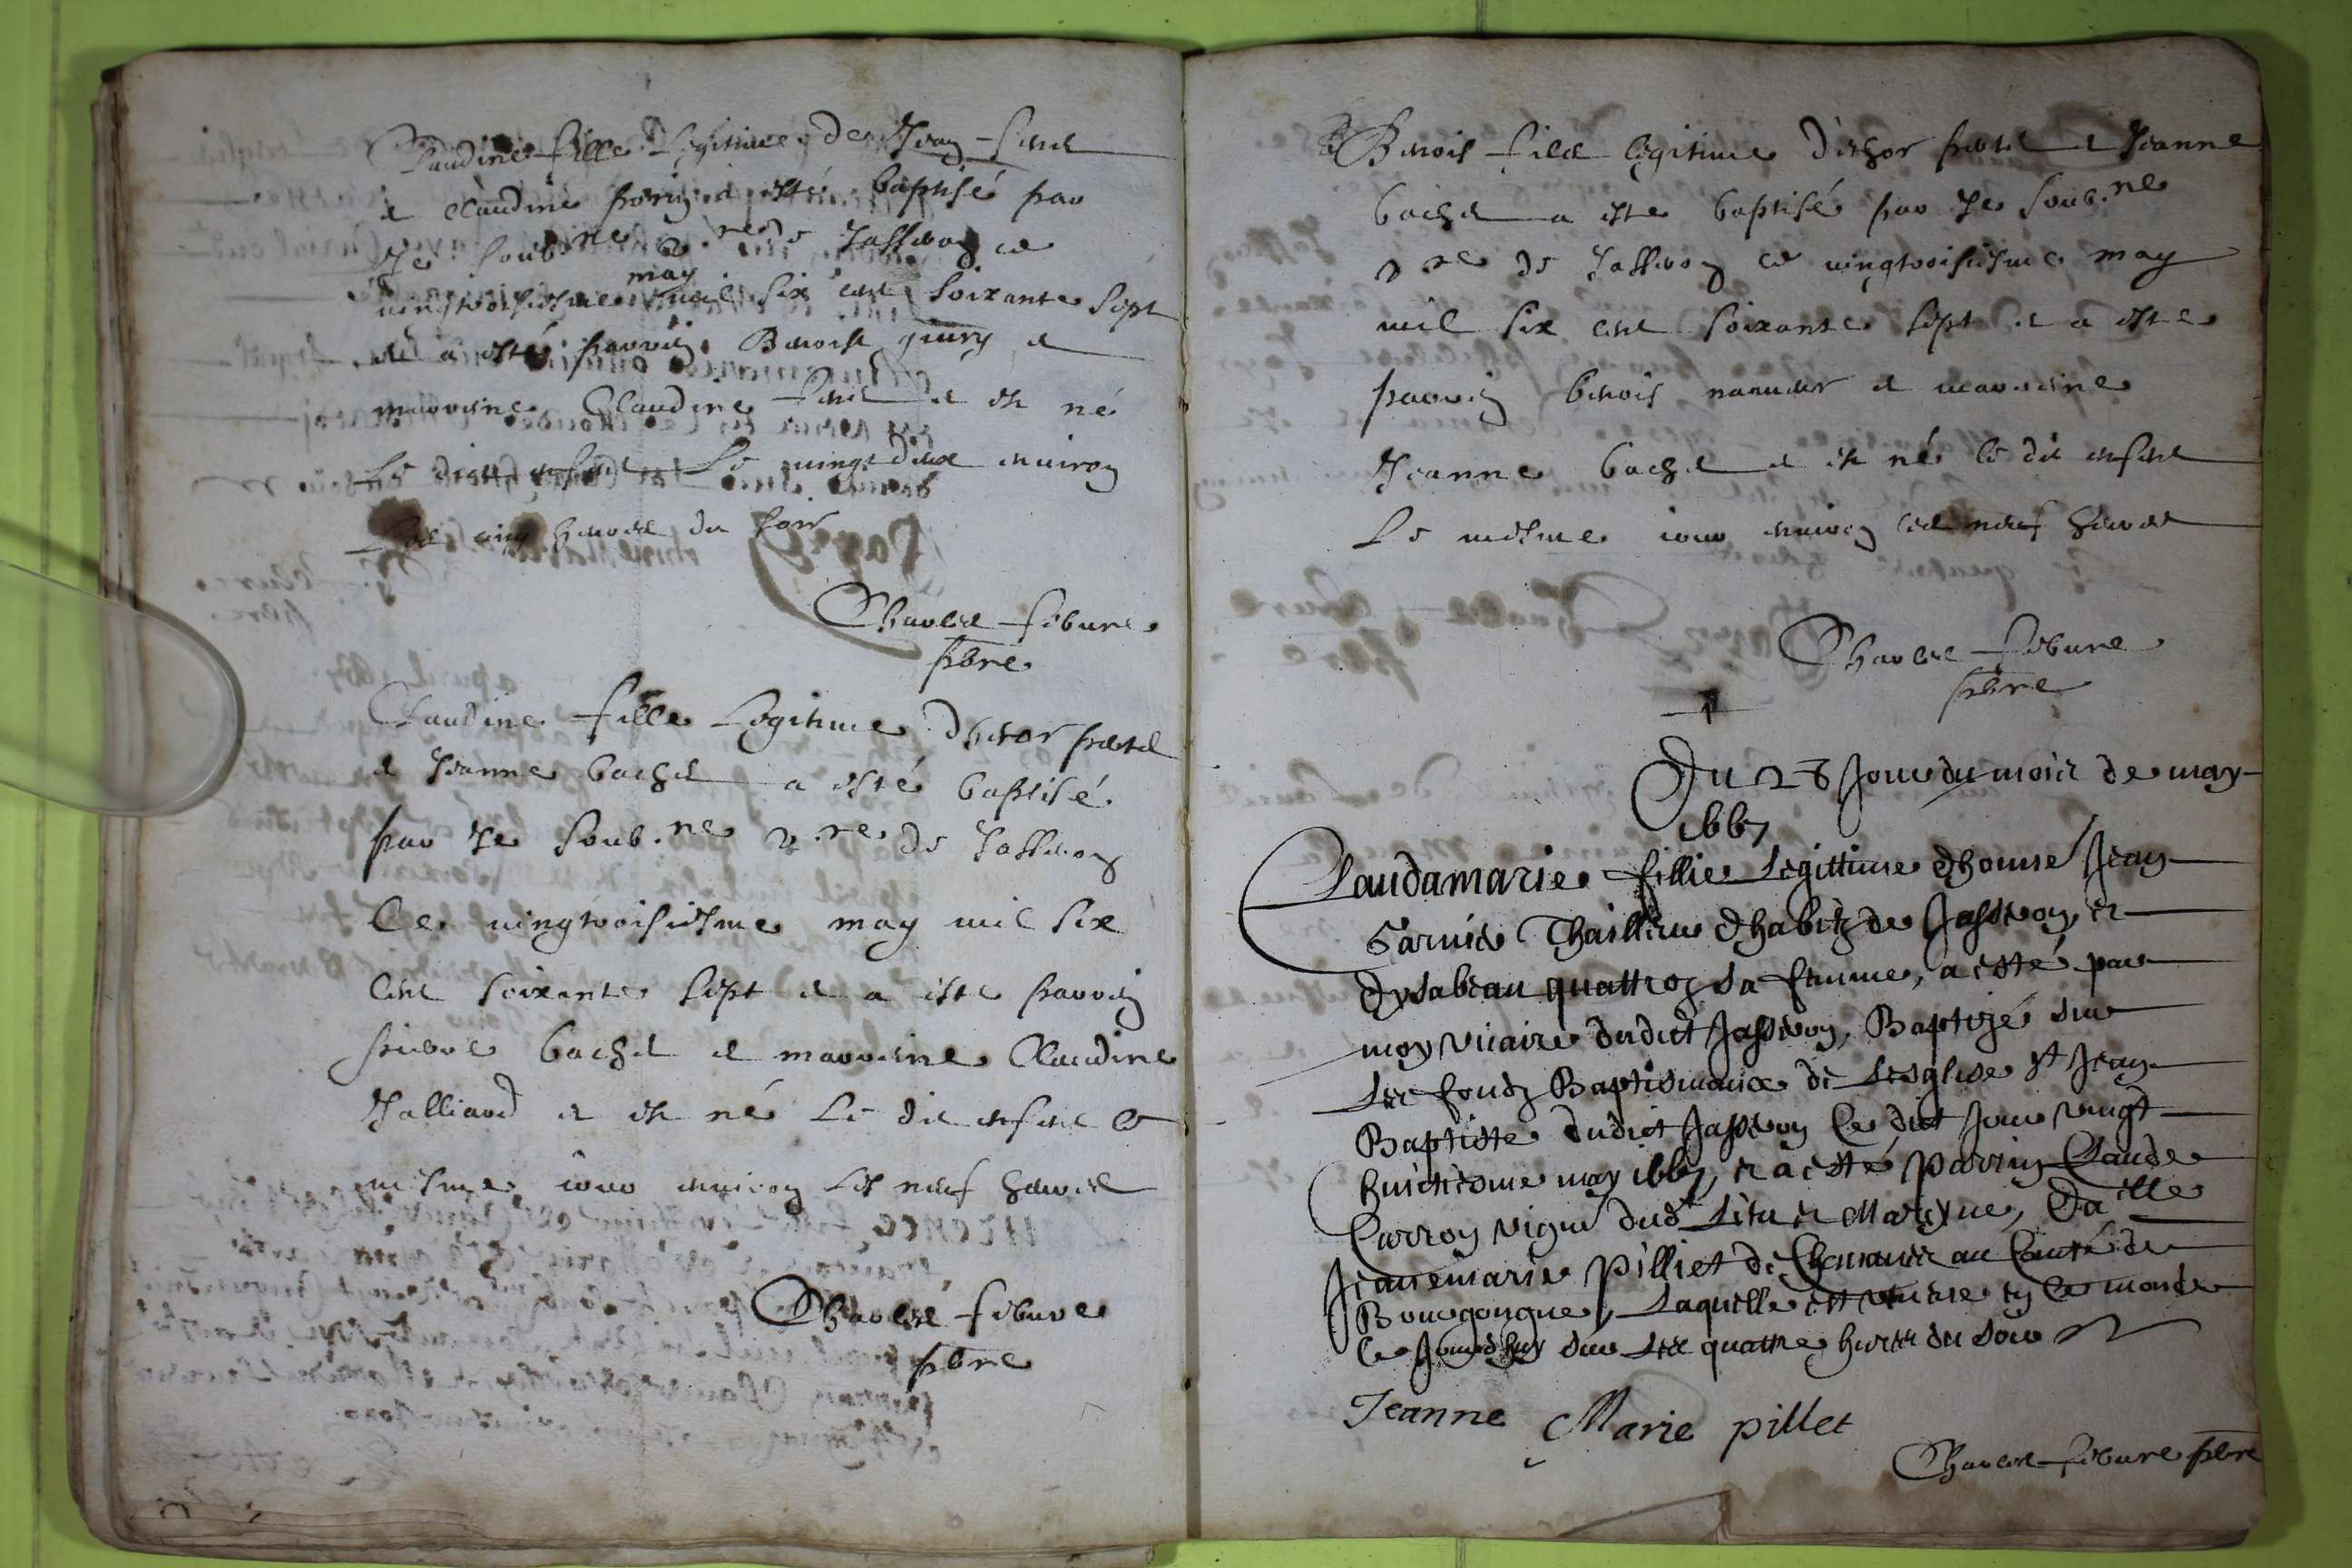 Claudine fille legitime de Jean
et Claudine a esté baptisé par
Je soub.ne v.re de Jasseron ce
may
vingtroisiesme mil six cent soixante sept
et a esté parrin Benoist et
marreine Claudine et est né
Le dict enfent Le vingt deux environ
cinq heures du soir
Charles febure
pbre
Claudine fille Legitime d'hetor
et Jeanne bachet a esté baptisé
par Je soub.ne v.re de Jasseron
Ce vingtroisiesme may mil six
cent soixante sept et a este parrin
pierre bachet et marreine Claudine
Jalliard et est né Le dit enfent le
mesme iour environ les neuf heures
Charles febure
pbre
Benois fils legitime d'ethor et Jeanne
bachet a este baptisé par Je soub.ne
v.re de Jasseron ce vingtroisiesme may
mil six cent soixante sept et a este
parrin benois et marreine
Jeanne bachet et est né le dit enfent
Le mesme iour environ les neuf heures
Charles febure
pbre
Du 28 Jour du mois de may
1667
Claudamarie fillie Legittime d'honne Jean
Garnier dhabitz de Jasseron, et
dysabeau quattroz sa femme, a esté par
moy vicaire dudict Jasseron, Baptizé sur
les fondz Baptismaux de Lesglise St Jean
Baptiste dudict Jasseron Ce dict Jour vingt
huictiesme may 1667, et a esté parrin Claude
Carron vign dud Lieu et Mareyne, Da.lle
Jeanemarie Pilliet de au Conté de
Bourgongne, Laquelle est venue en Ce monde
Ce Jourdhuy sur Les quattre heures du soir
Jeanne Marie pillet
Charles febure pbre